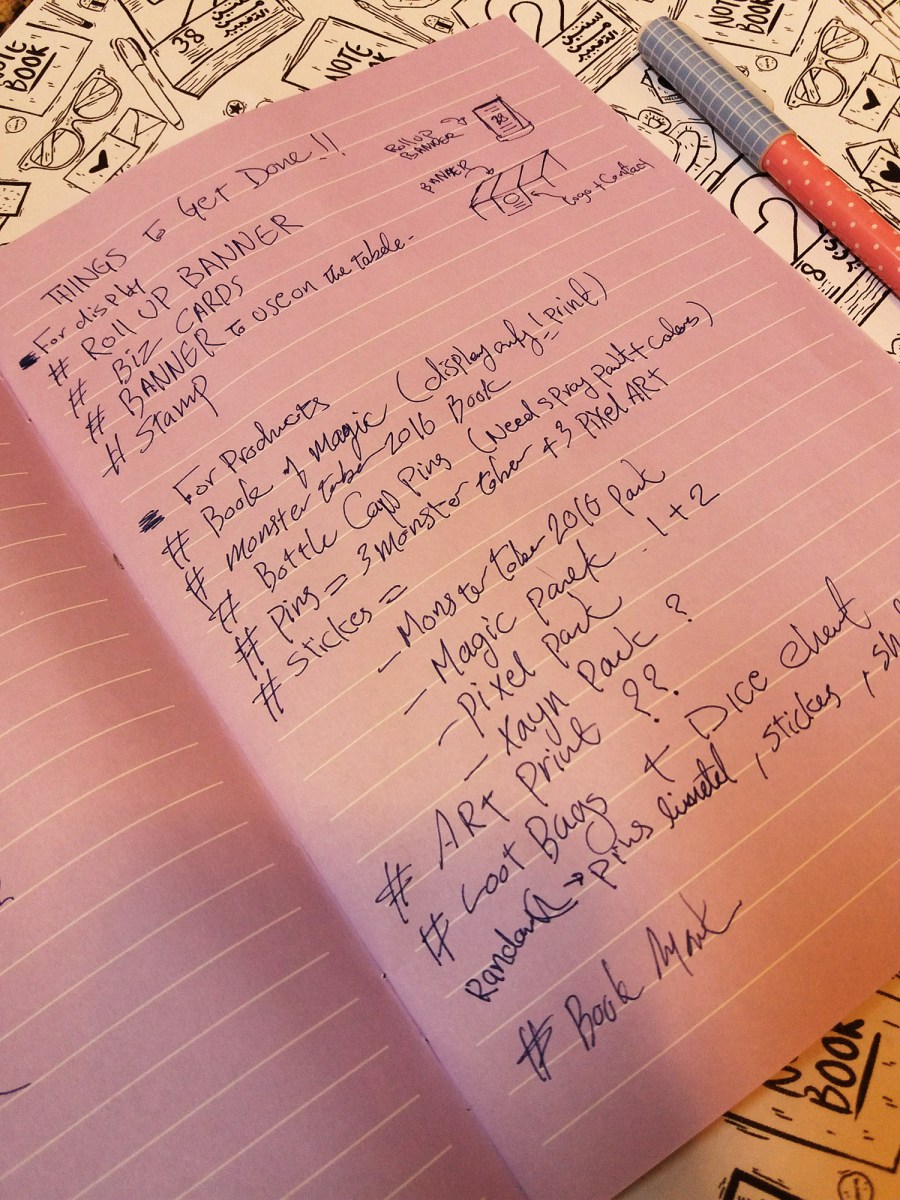 THINGS to Get Done!!
Roll UP
BANNER
38
BANNER
Logo + Contact
For display
# Roll UP BANNER
# Biz CARDS
# BANNER to use on the tabele.
# Stamp
For Products
# Book of Magic (display only! print)
# Monster tober 2016 Book
# Bottle Cap Pins (Need spray paint + colors)
# Pins = 3 Monster tober + 3 PIXel ART
# Stickes =
- Monster tober 2016 pack
- Magic pack 1+2
- Pixel pack
- Xayn Pack ?
# ARt Print ??
# Loot Bags + Dice chest
Random → pins , stickes ,
# Book Mark
NOTE
BOOK
NOTE
BOOK
38
NOTE
BOOK
BOOK
BOOK